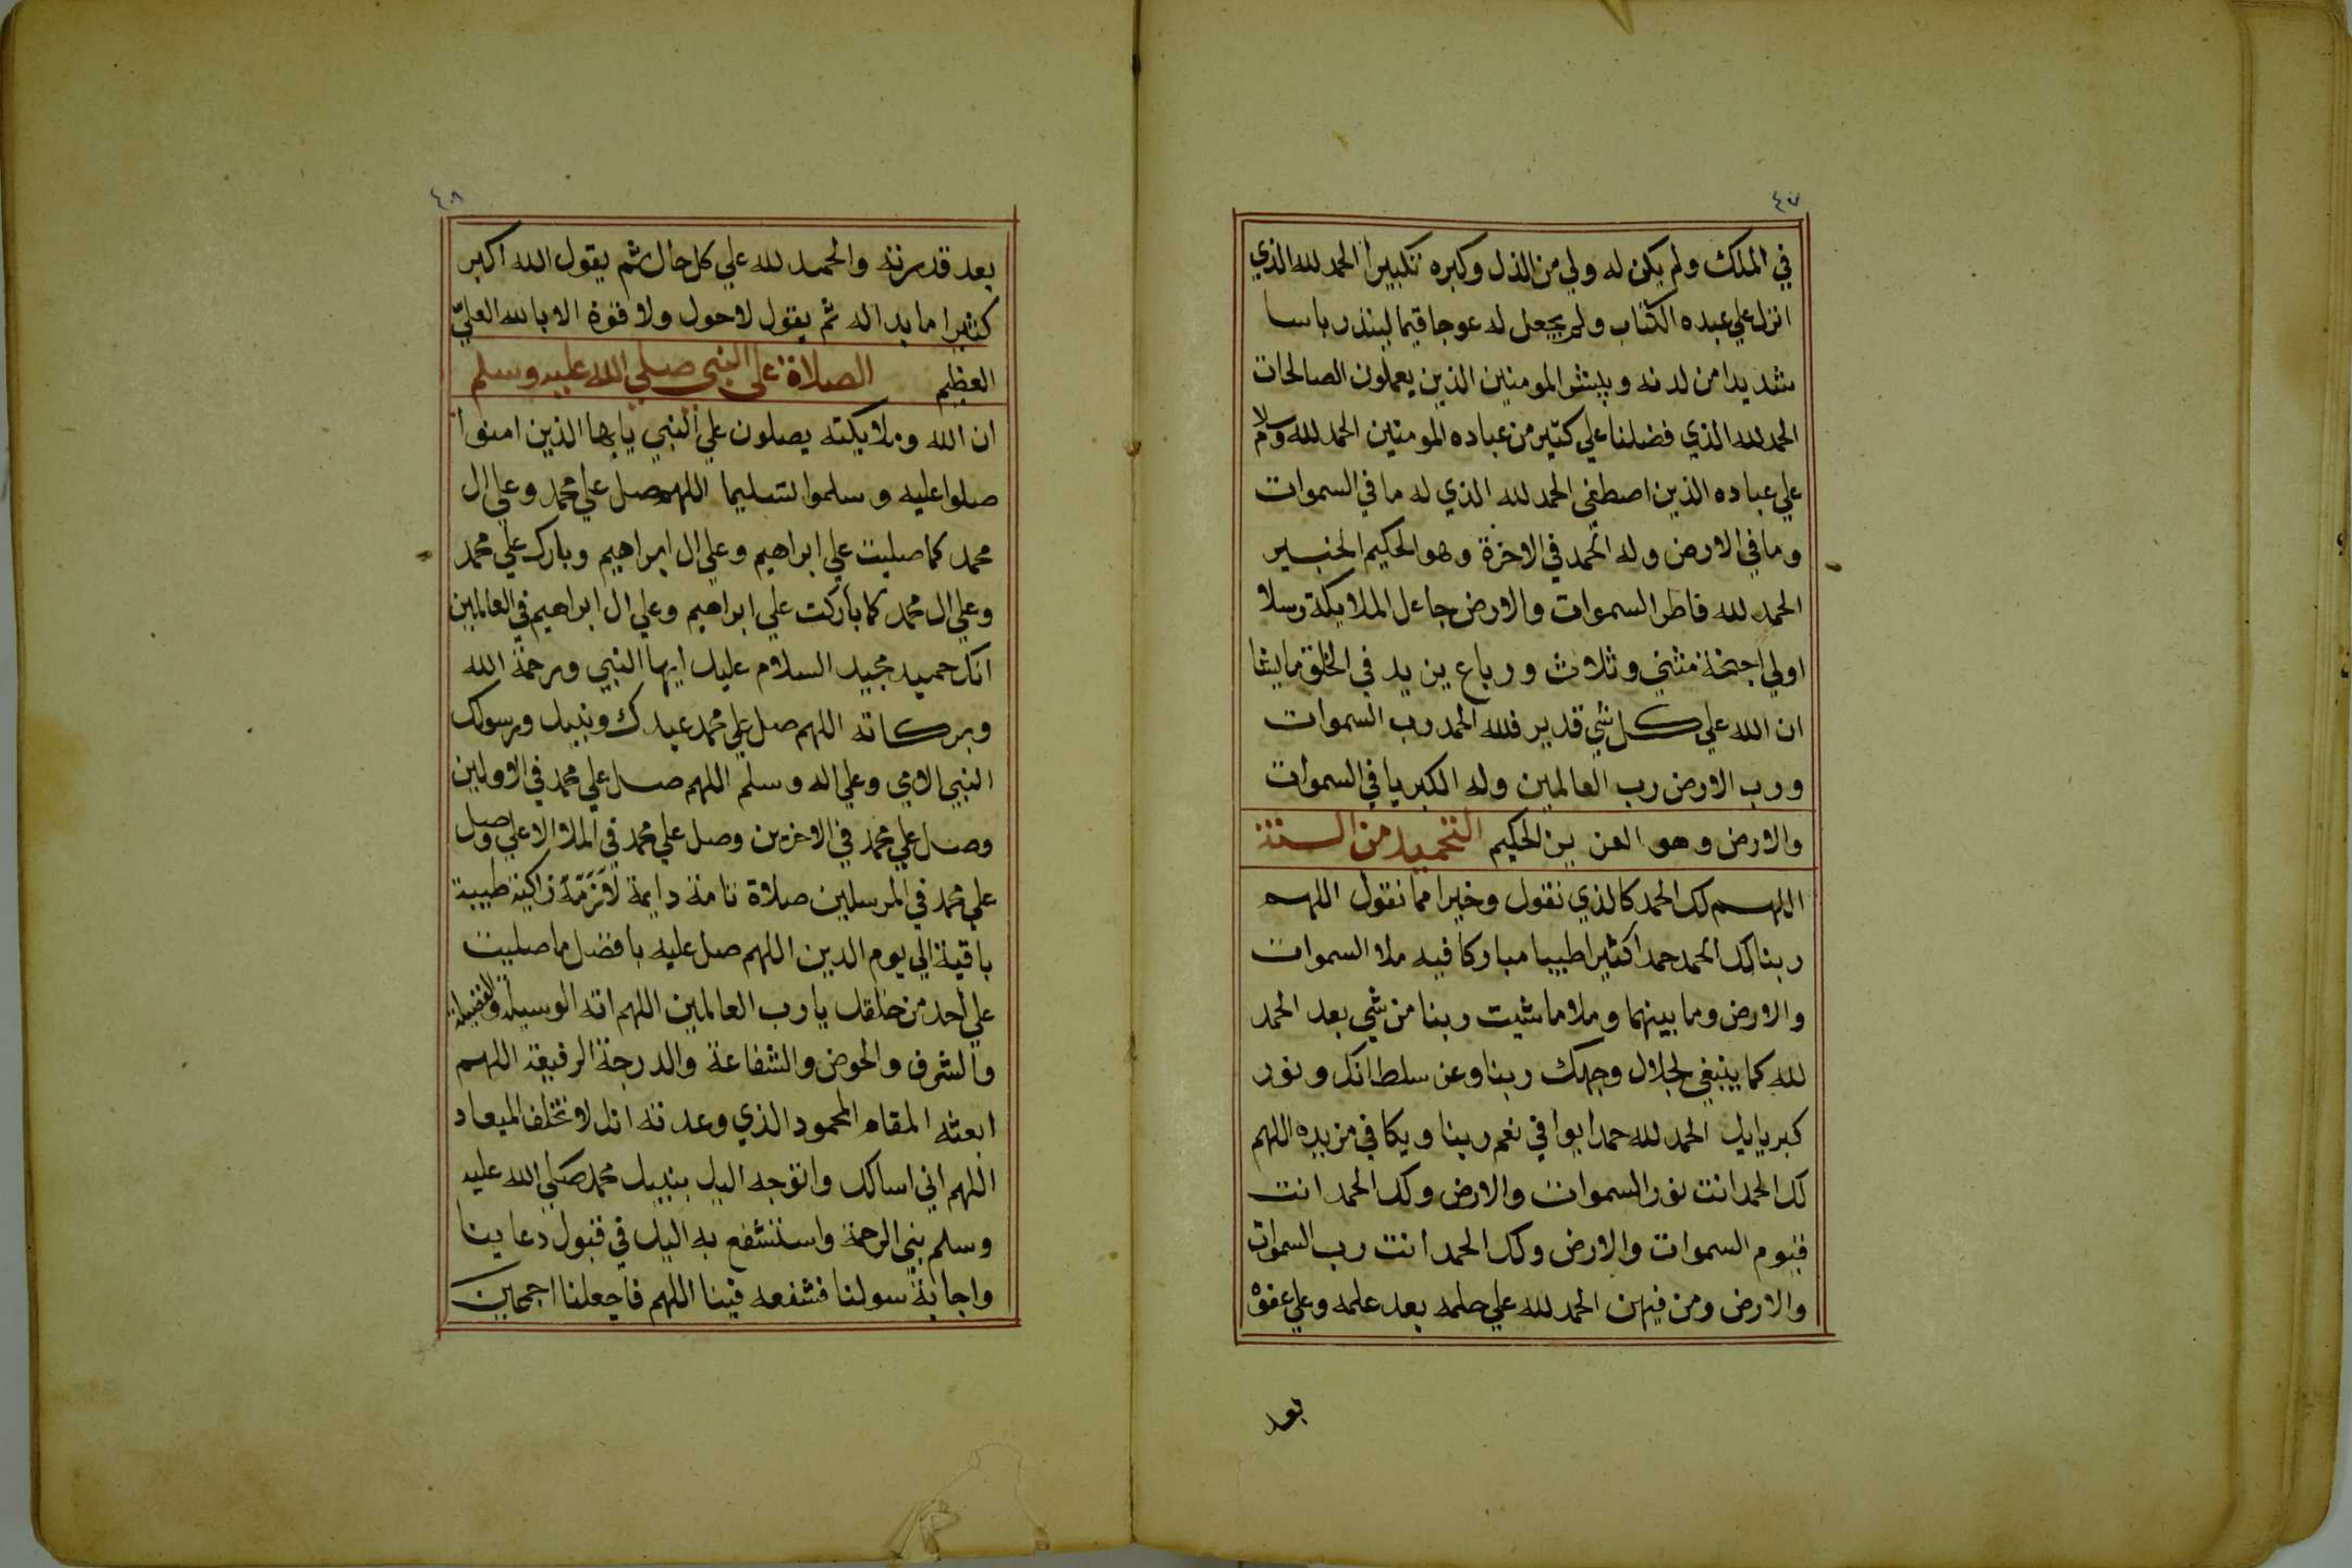 ٤٧
في الملك ولم يكن له ولي من الذل وكبره تكبيرا الحمد لله الذي
انزل علي عبده الكتاب ولم يجعل له عوجا قيما لينذر باسا
شديدا من لدنه ويبشر المومنين الذين يعملون الصالحات
الحمد لله الذي فضلنا علي كثير من عباده المومنين الحمد لله وسلام
علي عباده الذين اصطفي الحمد لله الذي له ما في السموات
وما في الارض وله الحمد في الاخرة وهو الحكيم الخبير
الحمد لله فاطر السموات والارض جاعل الملايكة رسلا
اولي اجنحة مثني وثلاث ورباع يزيد في الخلق ما يشا
ان الله علي كل شي قدير فلله الحمد رب السموات
ورب الارض رب العالمين وله الكبريا في السموات
والارض وهو العزيز الحكيم التحميد من السنة
اللهم لك الحمد كالذي نقول وخيرا مما نقول اللهم
ربنا لك الحمد حمدا كثيرا طيبا مباركا فيه ملا السموات
والارض وما بينهما وملا ما شيت ربنا من شي بعد الحمد
لله كما ينبغي لجلال وجهك ربنا وعز سلطانك ونور
كبريايك الحمد لله حمدا يوافي نعم ربنا ويكافي مزيده اللهم
لك الحمد انت نور السموات والارض ولك الحمد انت
قيوم السموات والارض ولك الحمد انت رب السموات
والارض ومن فيهن الحمد لله علي حلمه بعد علمه وعلي عفوه
بعد
٤٨
بعد قدرته والحمد لله علي كل حال ثم يقول الله اكبر
كثيرا ما بدا له ثم يقول لا حول ولا قوة الا بالله العليّ
العظيم الصلاة علي النبي صلي الله عليه وسلم
ان الله وملايكته يصلون علي النبي يايها الذين امنوا
صلوا عليه وسلموا تسليما اللهم صل علي محمد وعلي ال
محمد كما صليت علي ابراهيم وعلي ال ابراهيم وبارك علي محمد
وعلي ال محمد كما باركت علي ابراهيم وعلي ال ابراهيم في العالمين
انك حميد مجيد السلام عليك ايها النبي ورحمة الله
وبركاته اللهم صل علي محمد عبدك ونبيك ورسولك
النبي الامي وعلي اله وسلم اللهم صل علي محمد في الاولين
وصل علي محمد في الاخرين وصل علي محمد في الملا الاعلي وصل
علي محمد في المرسلين صلاة تامة دايمة لازمة زاكية طيبة
باقية الي يوم الدين اللهم صل عليه بافضل ما صليت
علي احد من خلقك يا رب العالمين اللهم اته الوسيلة والفضيلة
والشرف والحوض والشفاعة والدرجة الرفيعة اللهم
ابعثه المقام المحمود الذي وعدته انك لا تخلف الميعاد
اللهم اني اسالك واتوجه اليك بنبيك محمد صلي الله عليه
وسلم نبي الرحمة واستشفع به اليك في قبول دعاينا
واجابة سولنا فشفعه فينا اللهم فاجعلنا اجمعين